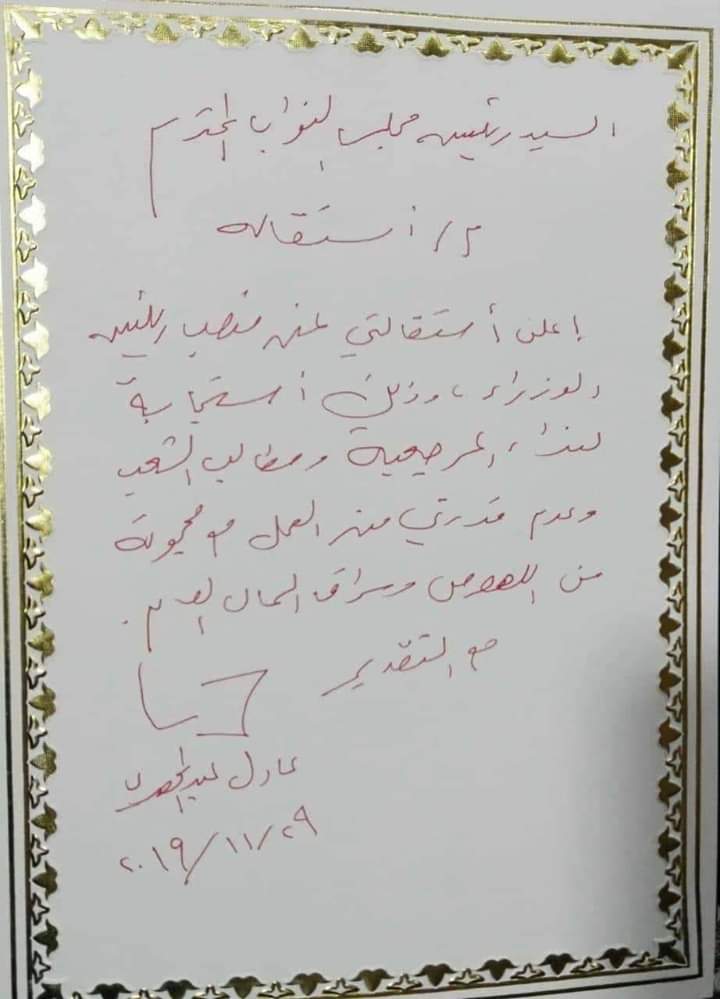 السيد رئيس مجلس النواب المحترم
م / أستقاله
إعلن أستقالتي من منصب رئيس
الوزراء، وذلك أستجابة
لنداء المرجعية ومطالب الشعب
وعدم قدرتي من العمل مع مجموعة
من اللصوص وسراق المال العام.
مع التقدير
عادل عبد المهدي
٢٠١٩/١١/٢٩